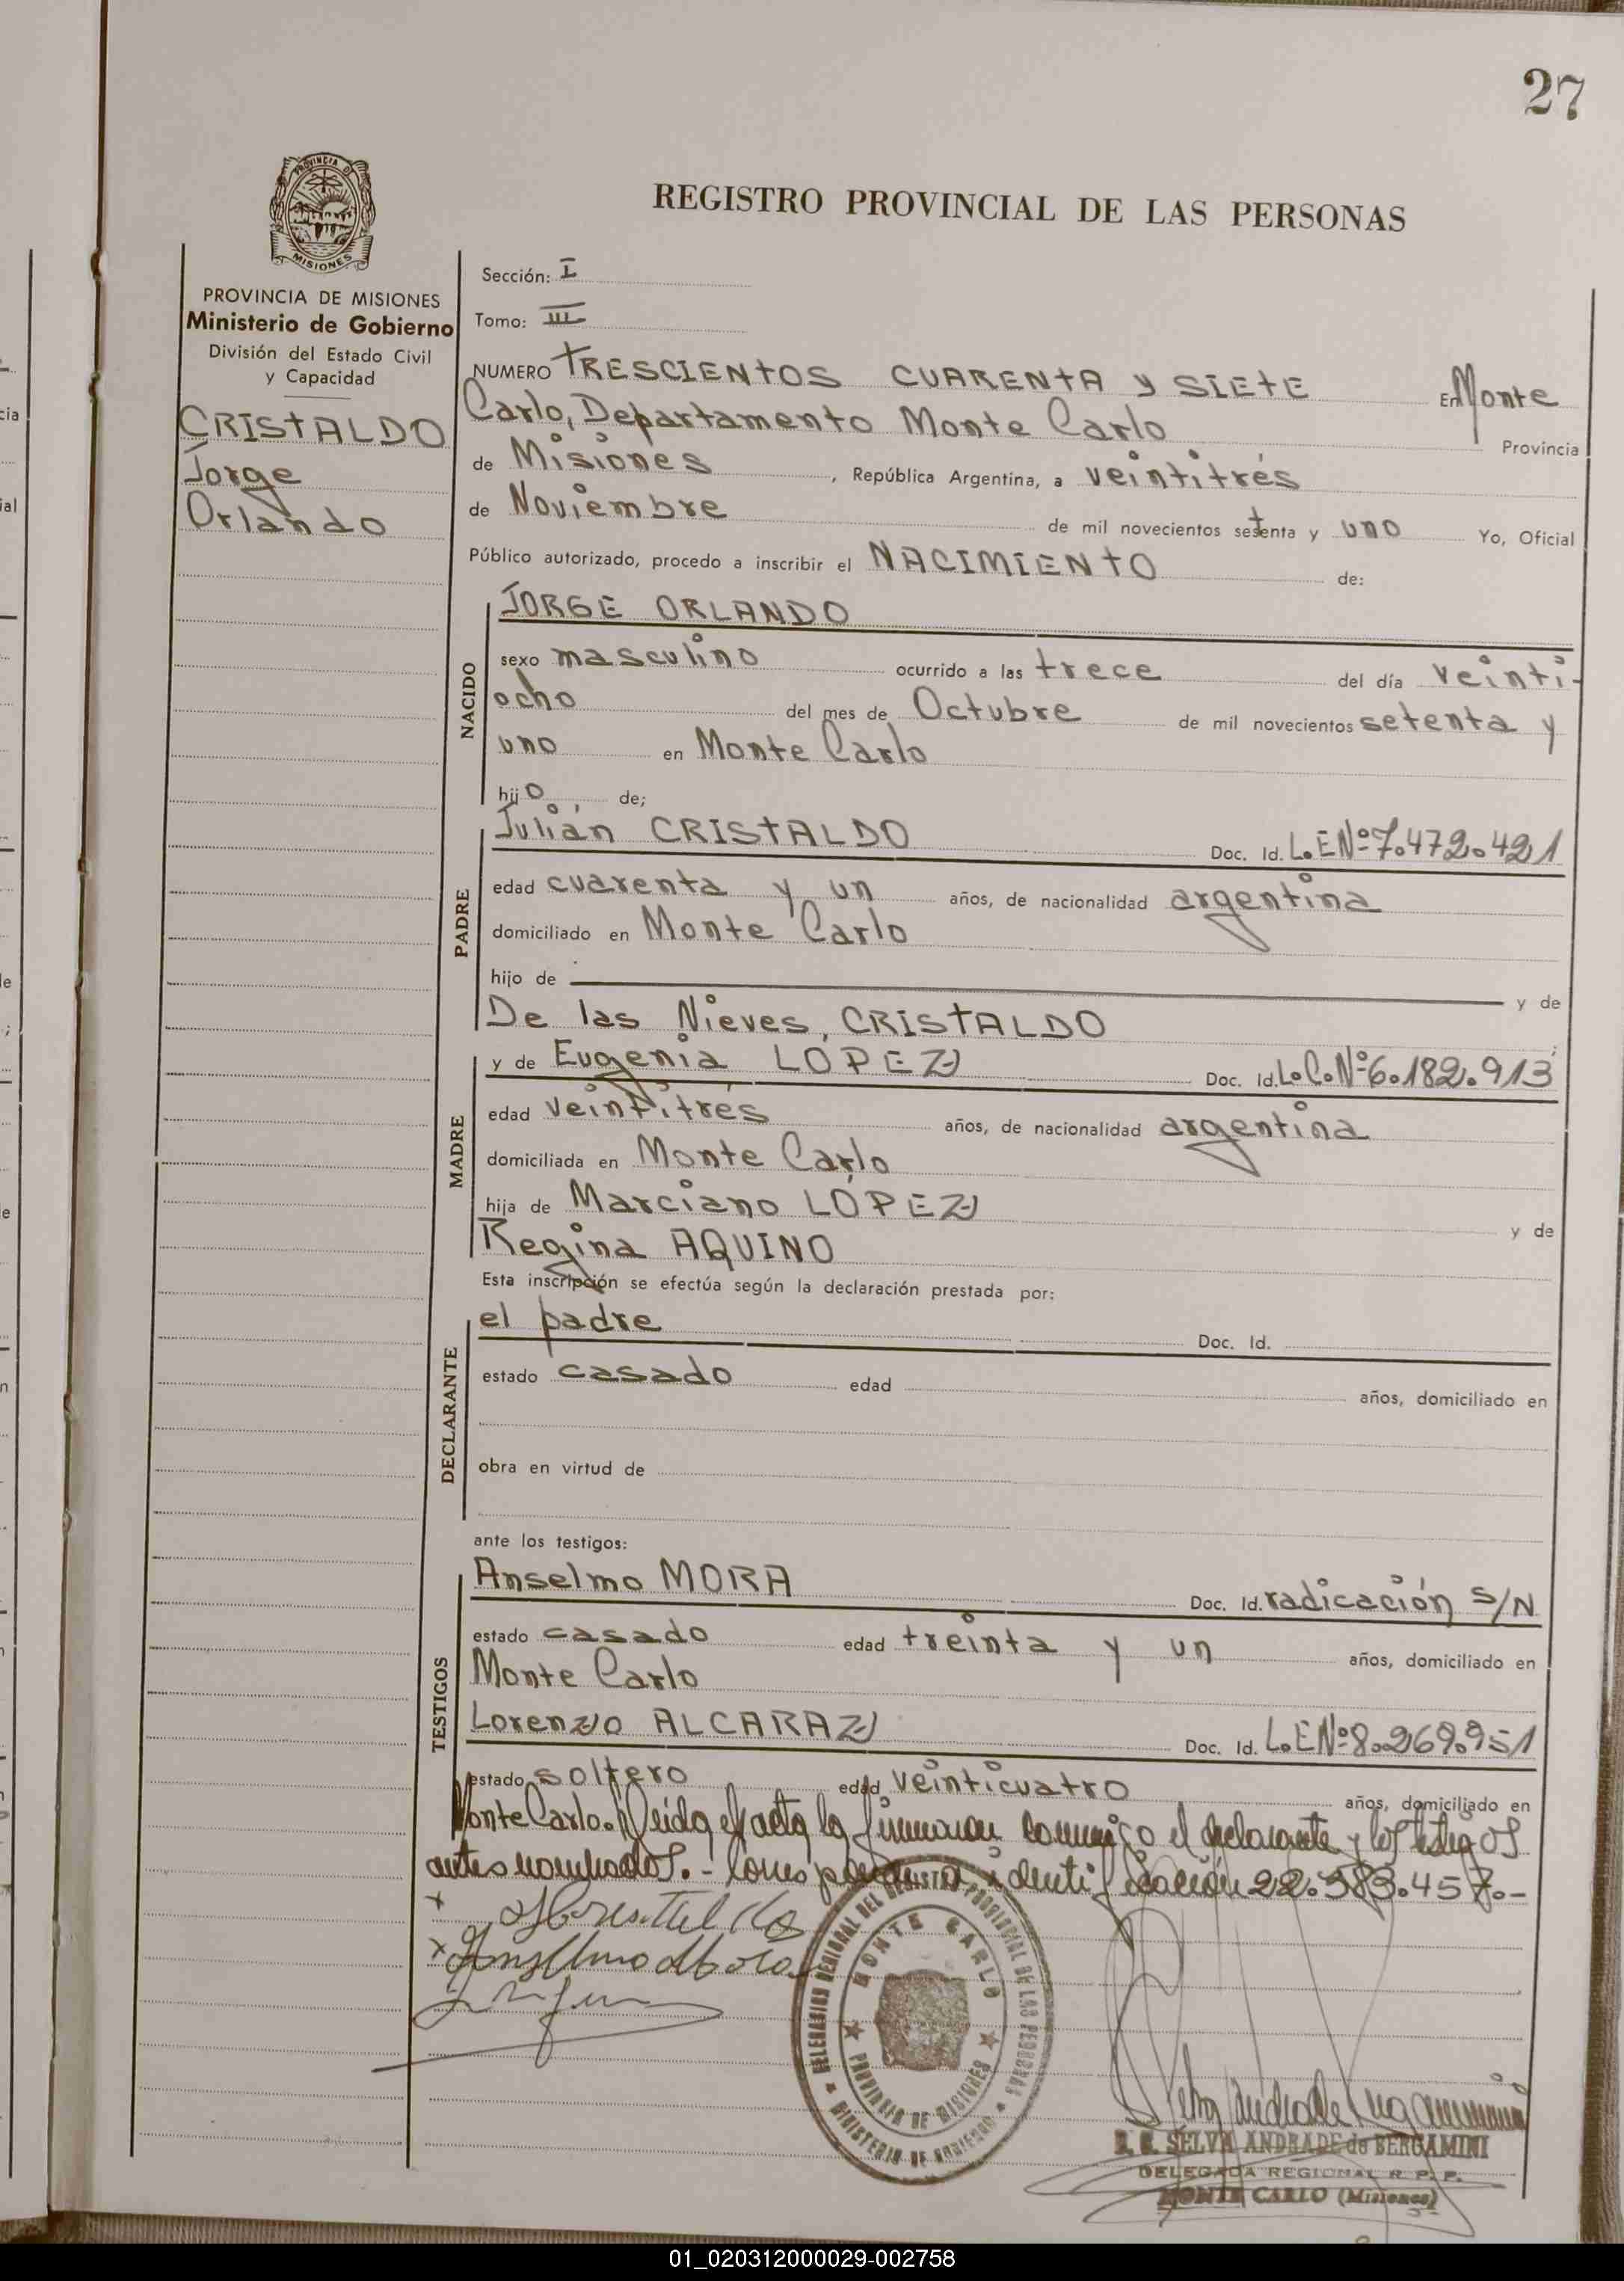 27
PROVINCIA D
MISIONES
REGISTRO PROVINCIAL DE LAS PERSONAS
PROVINCIA DE MISIONES
Ministerio de Gobierno
División del Estado Civil
y Capacidad
CRISTALDO
Jorge
Orlando
Sección: I
Tomo: III
NUMERO TRESCIENTOS CUARENTA y SIETE En Monte
Carlo, Departamento Monte Carlo Provincia
de Misiones, República Argentina, a veintitrés
de Noviembre de mil novecientos setenta y uno Yo, Oficial
Público autorizado, procedo a inscribir el NACIMIENTO de:
NACIDO
JORGE ORLANDO
sexo masculino ocurrido a las trece del día veinti-
ocho del mes de Octubre de mil novecientos setenta y
uno en Monte Carlo
hijo de;
PADRE
Julián CRISTALDO Doc. Id. L.E Nº 7.472.421
edad cuarenta y un años, de nacionalidad argentina
domiciliado en Monte Carlo
hijo de y de
De las Nieves, CRISTALDO
MADRE
y de Eugenia LÓPEZ Doc. Id. L.C. Nº 6.182.913
edad veintitrés años, de nacionalidad argentina
domiciliada en Monte Carlo
hija de Marciano LÓPEZ y de
Regina AQUINO
Esta inscripción se efectúa según la declaración prestada por:
DECLARANTE
el padre Doc. Id.
estado casado edad años, domiciliado en
obra en virtud de
ante los testigos:
TESTIGOS
Anselmo MORA Doc. Id. radicación S/N
estado casado edad treinta y un años, domiciliado en
Monte Carlo
Lorenzo ALCARAZ Doc. Id. L.E Nº 8.269.951
estado soltero edad veinticuatro años, domiciliado en
Monte Carlo. Leída el acta la firmaron conmigo el declarante y los testigos
antes nombrados.- Corresponde identificación 22.383.457.-
Anselmo Mora
DELEGACION REGIONAL DEL REGISTRO PROVINCIAL DE LAS PERSONAS
MINISTERIO DE GOBIERNO
MONTE CARLO
PROVINCIA DE MISIONES
SELVA ANDRADE de BERGAMINI
DELEGADA REGIONAL R. P. P.
MONTE CARLO (Misiones)
01_020312000029-002758